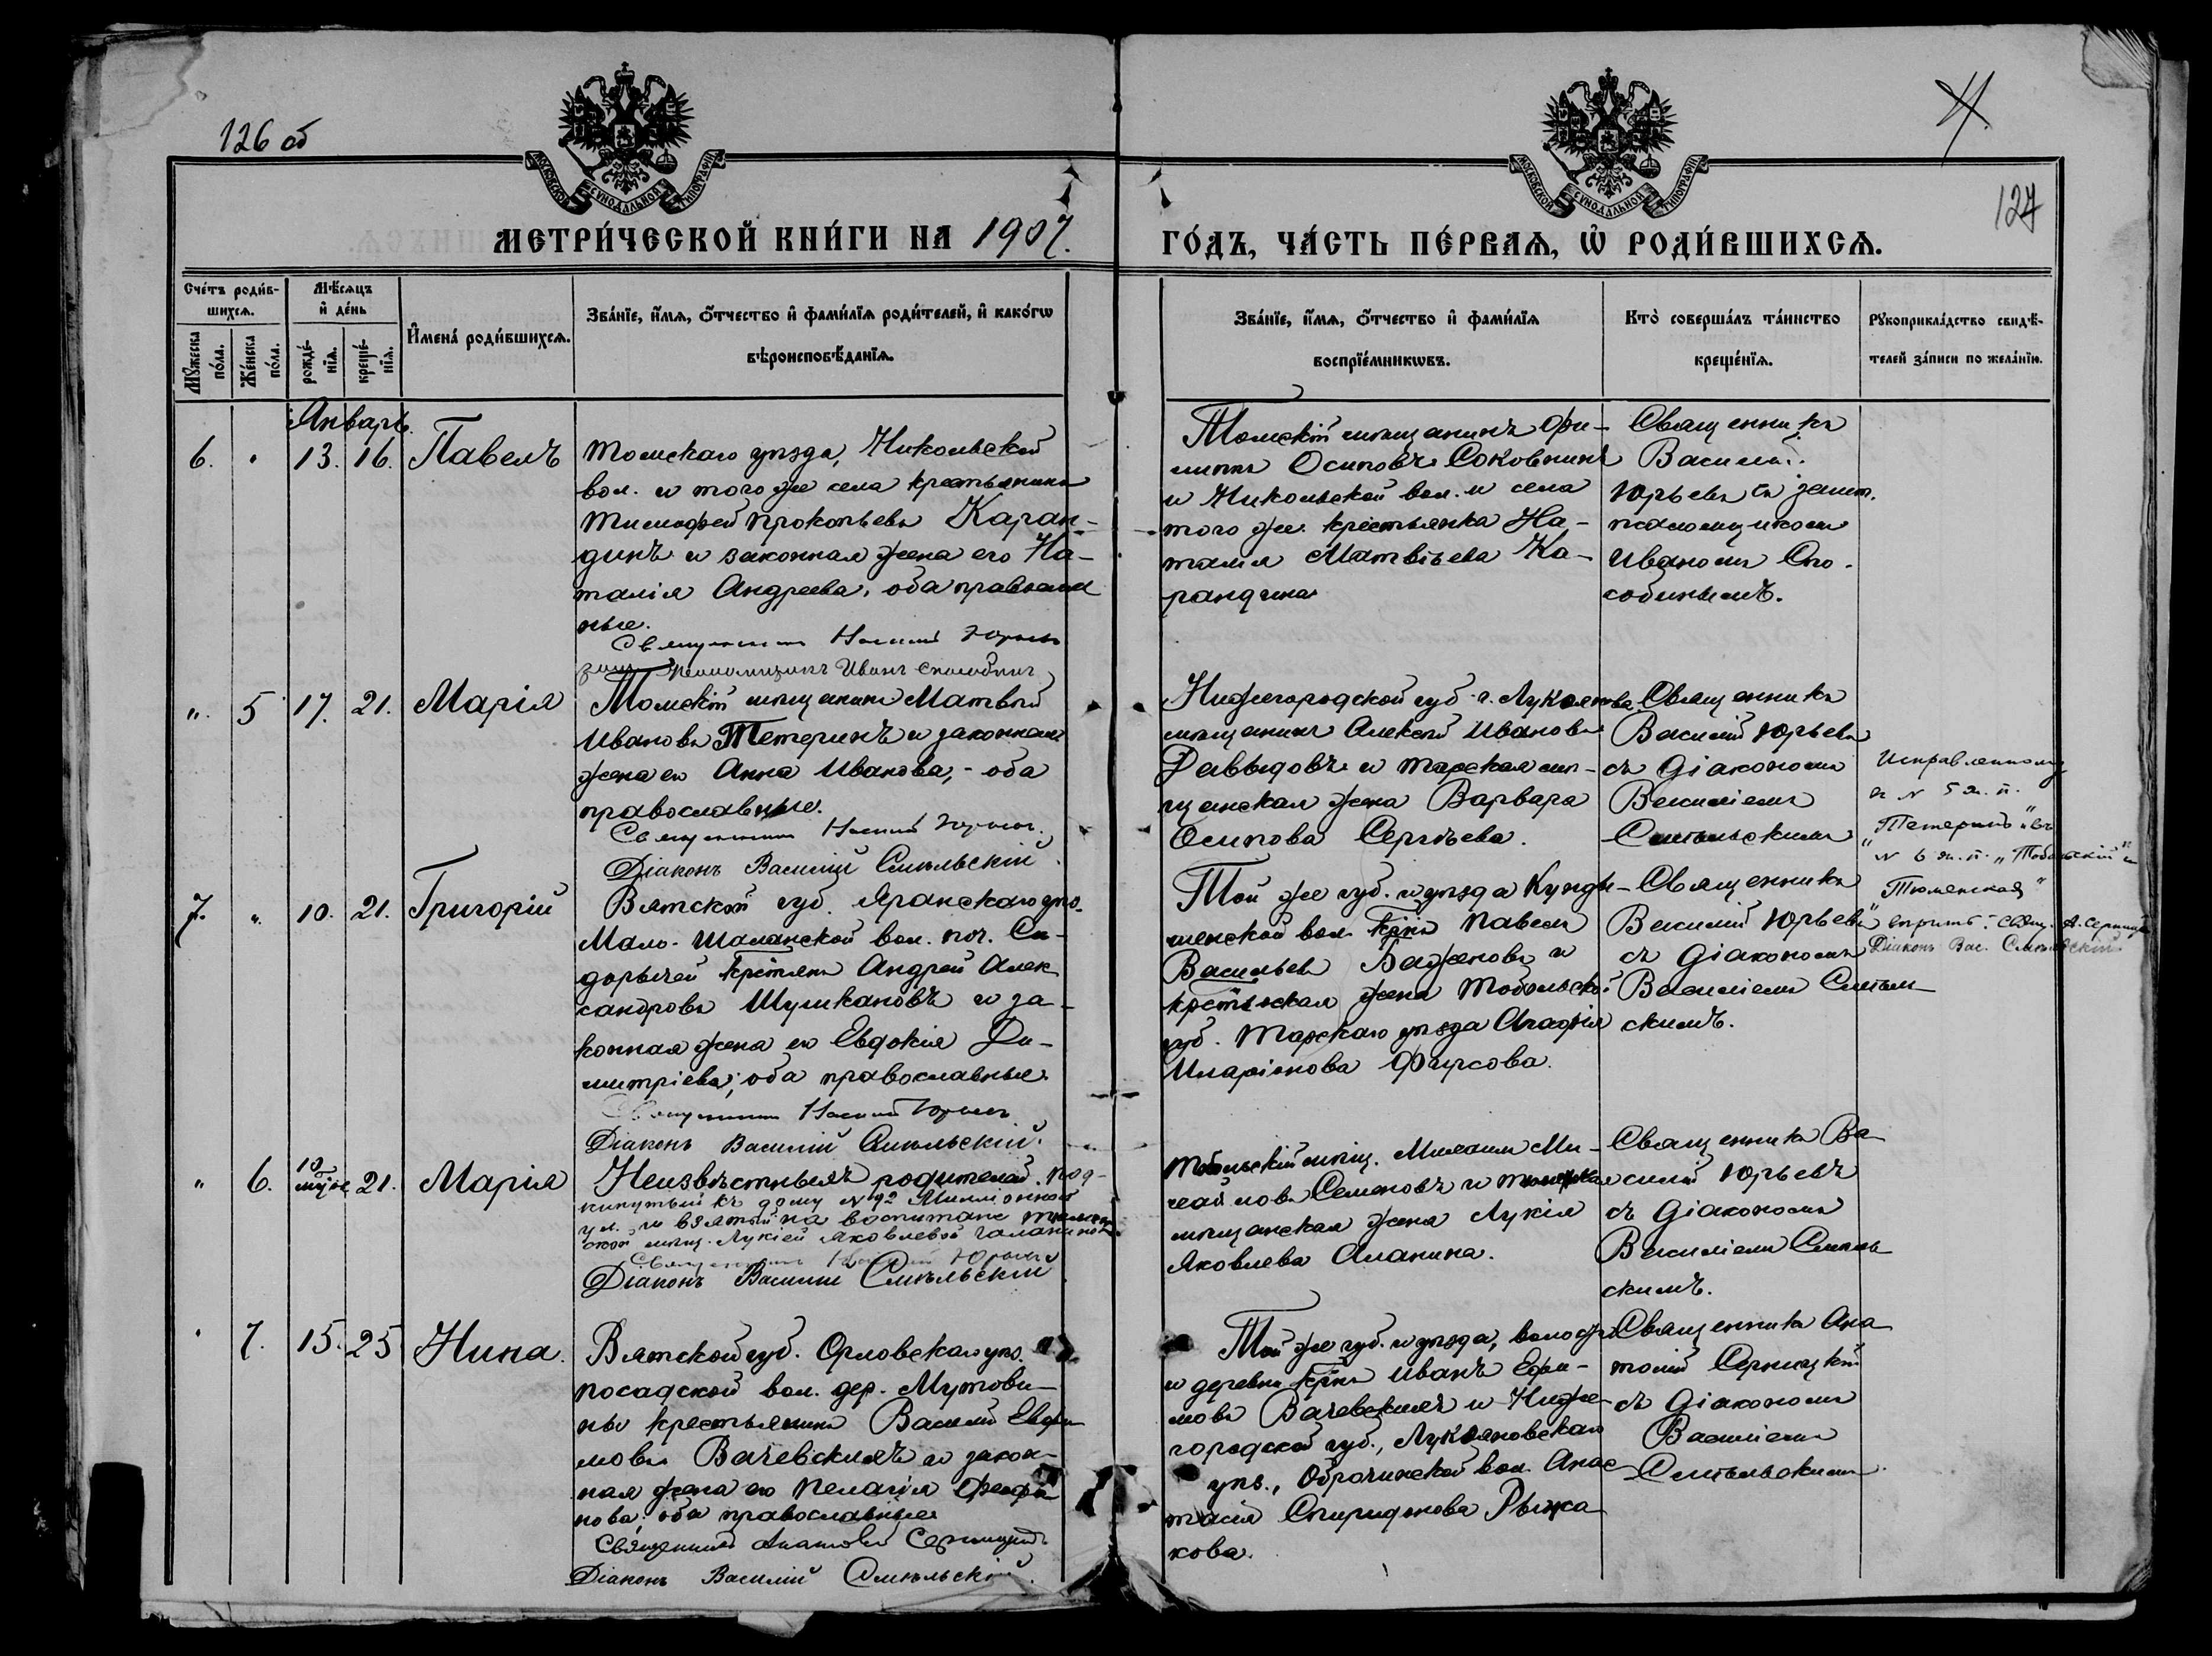 126 об
4
127
МОСКОВСКОЙ СѴНОДАЛЬНОЙ ТИПОГРАФІИ
МОСКОВСКОЙ СѴНОДАЛЬНОЙ ТИПОГРАФІИ
МЕТРИ́ЧЕСКОЙ КНИ́ГИ НА 1907.
ГО́ДЪ, ЧА́СТЬ ПЕ́РВАѦ, Ѡ҆ РОДИ́ВШИХСѦ.
Сче́тъ роди́в-
шихсѧ.
Мꙋжеска по́ла.
Же́нска по́ла.
Мѣ́сѧцъ
и҆ де́нь
рожде́-
нїѧ.
креще́-
нїѧ.
И҆мена̀ роди́вшихсѧ.
Зва́нїе, и҆́мѧ, ѻ҆́тчество и҆ фами́лїѧ роди́телей, и҆ како́гѡ
вѣроисповѣ́данїѧ.
Зва́нїе, и҆́мѧ, ѻ҆́тчество и҆ фами́лїѧ
воспрїе́мникѡвъ.
Кто̀ соверша́лъ та́инство
креще́нїѧ.
Рꙋкоприкла́дство свидѣ́-
телей за́писи по жела́нїю.
Январь.
6. " 13. 16. Павелъ
Томскаго уѣзда, Никольской
вол. и того же села крестьянинъ
Тимофей Прокопьевъ Каран-
динъ и законная жена его На-
талія Андреева, оба православ
ные.
Священникъ Василій Юрьевъ
Псаломщикъ Иванъ Способинъ
Томскій мѣщанинъ Фи-
липпъ Осиповъ Соковнинъ
и Никольской вол. и села
того же крестьянка На-
талія Матвѣева Ка-
рандина
Священникъ
Василій
Юрьевъ съ
псаломщикомъ
Иваномъ Спо-
собинымъ.
". 5 17. 21. Марія
Томскій мѣщанинъ Матвѣй
Ивановъ Тетеринъ и законная
жена его Анна Иванова, - оба
православные.
Священникъ Василій Юрьевъ.
Діаконъ Василій Смѣльскій.
Нижегородской губ. г. Лукоянова
мѣщанинъ Алексѣй Ивановъ
Давыдовъ и Тарская мѣ-
щанская жена Варвара
Осипова Сергѣева.
Священникъ
Василій Юрьевъ
съ діакономъ
Василіемъ
Смѣльскимъ
Исправленному
въ № 5 ж. п.
"Тетеринъ" и въ
№ 6 ж. п. "Тобольскій" и
"Тюменская"
вѣрить: Свящ. А. Серницкій
Діаконъ Вас. Смѣльскій.
7. ". 10. 21. Григорій
Вятской губ. Яранскаго уѣз.
Мало-Шалайской вол. поч. Си-
дорычей крестьян. Андрей Алек
сандровъ Шушкановъ и за-
конная жена его Евдокія Ди-
митріева; оба православные.
Священникъ Василій Юрьевъ
Діаконъ Василій Смѣльскій.
Той же губ. и уѣзда Кунды-
шенской вол. кр-нъ Павелъ
Васильевъ Баженовъ и
крестьянская жена Тобольской
губ. Тарскаго уѣзда Агафія
Иларіонова Фирсова.
Священникъ
Василій Юрьевъ
съ діакономъ
Василіемъ Смѣль-
скимъ.
" 6. 10 21. Марія
Неизвѣстныхъ родителей, под-
кинутый къ дому № 92 Милліонной
ул. и взятый на воспитаніе тюмен-
ской мѣщ. Лукіей Яковлевой Галаниной
Священникъ Василій Юрьевъ
Діаконъ Василій Смѣльскій
Тобольскій мѣщ. Михаилъ Ми-
хайловъ Семеновъ и тюменская
мѣщанская жена Лукія
Яковлева Аланина.
Священникъ Ва-
силій Юрьевъ
съ діакономъ
Василіемъ Смѣль-
скимъ.
" 7. 15. 25 Нина.
Вятской губ. Орловскаго уѣз.
посадской вол. дер. Мутови-
ны крестьянинъ Василій Ефи
мовъ Вачевскихъ и закон-
ная жена его Пелагія Феофа
нова; оба православные
Священникъ Анатолій Серницкій
Діаконъ Василій Смѣльскій.
Той же губ. и уѣзда, волости
и деревни кр-нъ Иванъ Ефи-
мовъ Вачевскихъ и Ниже-
городской губ., Лукояновскаго
уѣз., Оброчинской вол. Анас-
тасія Спиридонова Рыжа
кова.
Священникъ Ана
толій Серницкій
съ діакономъ
Василіемъ
Смѣльскимъ.